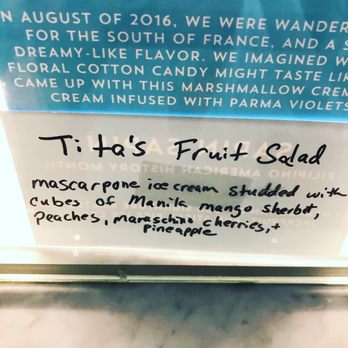 N AUGUST OF 2016, WE WERE WANDER
FOR THE SOUTH OF FRANCE, AND A S
DREAMY-LIKE FLAVOR. WE IMAGINED W
FLORAL COTTON CANDY MIGHT TASTE LIK
CAME UP WITH THIS MARSHMALLOW CREM
CREAM INFUSED WITH PARMA VIOLETS
Tita's Fruit Salad
FILIPINO AMERICAN HISTORY MONTH
mascarpone ice cream studded with
cubes of Manila mango sherbet,
peaches, maraschino cherries, +
pineapple